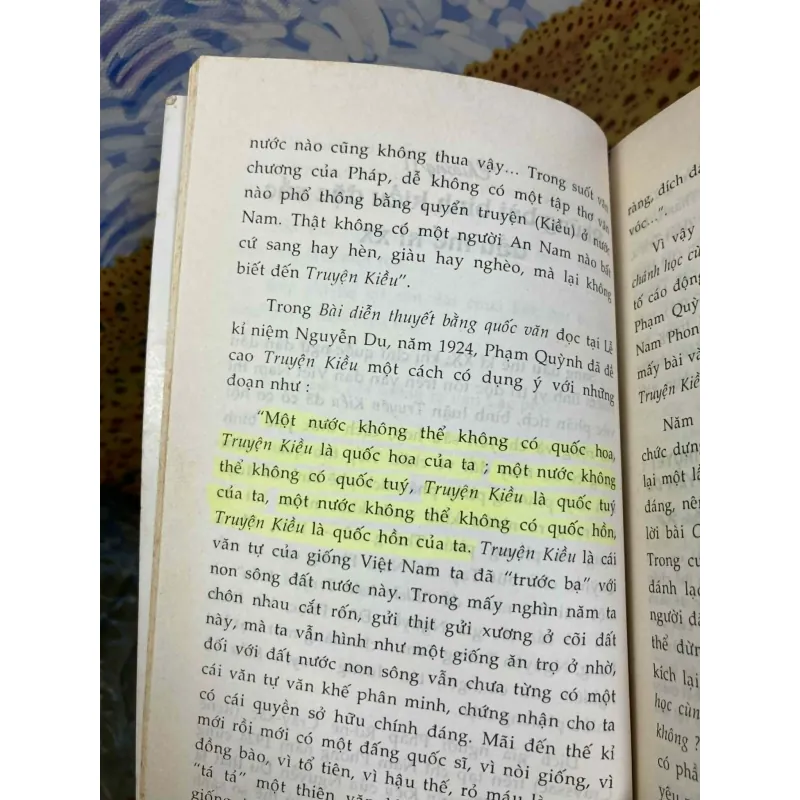 nước nào cũng không thua vậy... Trong suốt văn
chương của Pháp, dễ không có một tập thơ văn
nào phổ thông bằng quyển truyện (Kiều) ở nước
Nam. Thật không có một người An Nam nào bất
cứ sang hay hèn, giàu hay nghèo, mà lại không
biết đến Truyện Kiều".
Trong Bài diễn thuyết bằng quốc văn đọc tại Lễ
kỉ niệm Nguyễn Du, năm 1924, Phạm Quỳnh đã đề
cao Truyện Kiều một cách có dụng ý với những
đoạn như :
"Một nước không thể không có quốc hoa,
Truyện Kiều là quốc hoa của ta ; một nước không
thể không có quốc tuý, Truyện Kiều là quốc tuý
của ta, một nước không thể không có quốc hồn,
Truyện Kiều là quốc hồn của ta. Truyện Kiều là cái
văn tự của giống Việt Nam ta đã "trước bạ" với
non sông đất nước này. Trong mấy nghìn năm ta
chôn nhau cắt rốn, gửi thịt gửi xương ở cõi đất
này, mà ta vẫn hình như một giống ăn trọ ở nhờ,
đối với đất nước non sông vẫn chưa từng có một
cái văn tự văn khế phân minh, chứng nhận cho ta
có cái quyền sở hữu chính đáng. Mãi đến thế kỉ
mới rồi mới có một đấng quốc sĩ, vì nòi giống, vì
đồng bào, vì tổ tiên, vì hậu thế, rỏ máu
"tá tá" một thiên văn
giống
ràng, đích
vóc...".
Vì vậy
chánh học cù
tố cáo động
Phạm Quỳn
Nam Phon
mấy bài và
Truyện Kiề
Năm
chức dựn
lại một lầ
đáng, nên
lời bài C
Trong cu
đánh lạc
người đã
thể dừn
kích lại
học cùn
không ?
có phầ
yêu